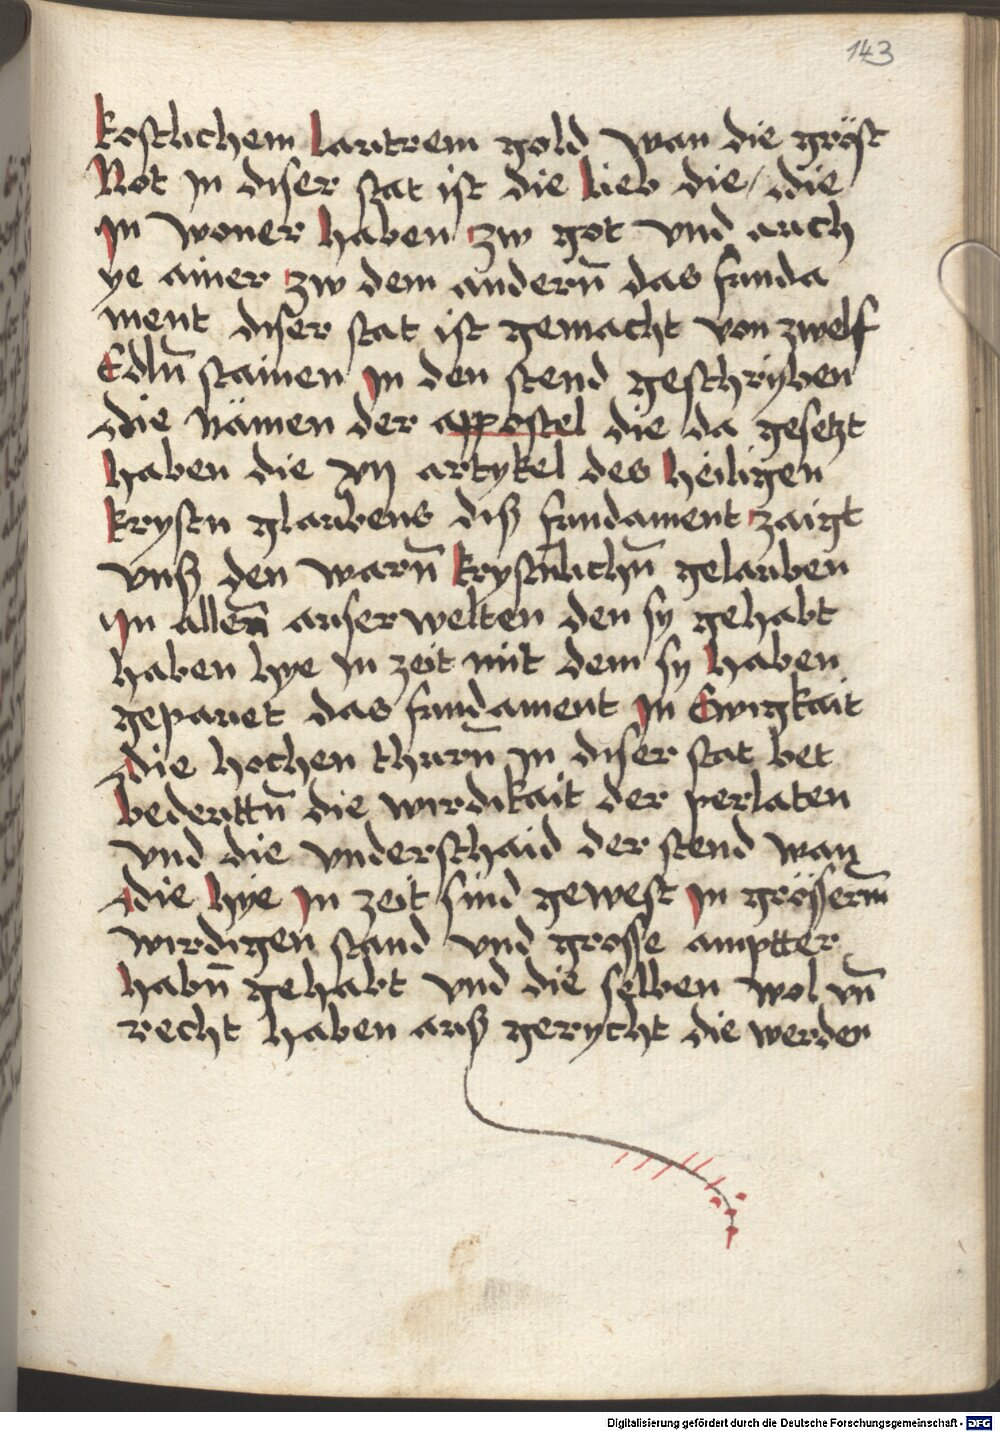 143
kostlichem lautrem gold wan die gröst
Not in diser stat ist die lieb die / die
In woner haben zw got vnd auch
ye ainer zw dem andern̄ das funda
ment diser stat ist gemacht von zwelf
Edln̄ stainen in den stend geschryben
die Nämen der appostel die da gesetzt
haben die xij artykel des heiligen
krystn glaubens diß fundament zaigt
vnß den warn̄ krystnlichn̄ gelauben
In allen auserwelten den sy gehabt
haben hye in zeit mit dem sy haben
gepauet das fundament in Ewigkait
die hochen thurn̄ in diser stat bet
bedeuttn̄ die wirdikait der perlaten
vnd die vnderschaid der stend wan
die hye in zeit sind gewest in grösserm̄
wirdigen stand vnd grosse amptter
habn̄ gehabt vnd die selben wol vn̄
recht haben auß gerycht die werden
Digitalisierung gefördert durch die Deutsche Forschungsgemeinschaft - DFG